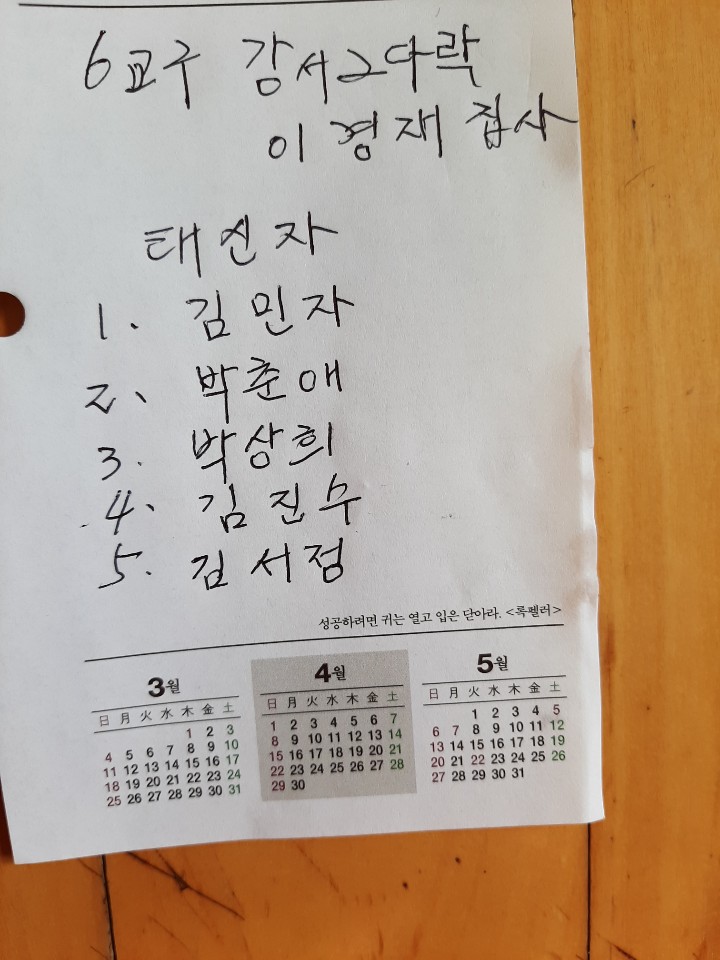 6교구 강서2다락
이경재 집사
태신자
1. 김민자
2. 박춘애
3. 박상희
4. 김진수
5. 김서점
성공하려면 귀는 열고 입은 닫아라. <록펠러>
3월
日 月 火 水 木 金 土
1 2 3
4 5 6 7 8 9 10
11 12 13 14 15 16 17
18 19 20 21 22 23 24
25 26 27 28 29 30 31
4월
日 月 火 水 木 金 土
1 2 3 4 5 6 7
8 9 10 11 12 13 14
15 16 17 18 19 20 21
22 23 24 25 26 27 28
29 30
5월
日 月 火 水 木 金 土
1 2 3 4 5
6 7 8 9 10 11 12
13 14 15 16 17 18 19
20 21 22 23 24 25 26
27 28 29 30 31